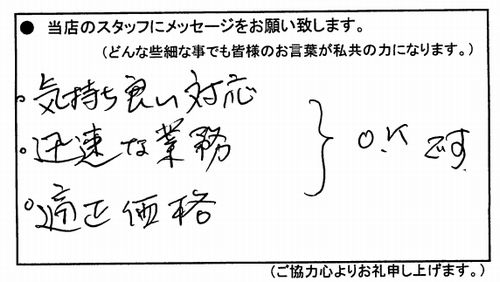 ● 当店のスタッフにメッセージをお願い致します。
(どんな些細な事でも皆様のお言葉が私共の力になります。)
・気持ち良い対応
・迅速な業務 } O.K です。
・適正価格
(ご協力心よりお礼申し上げます。)